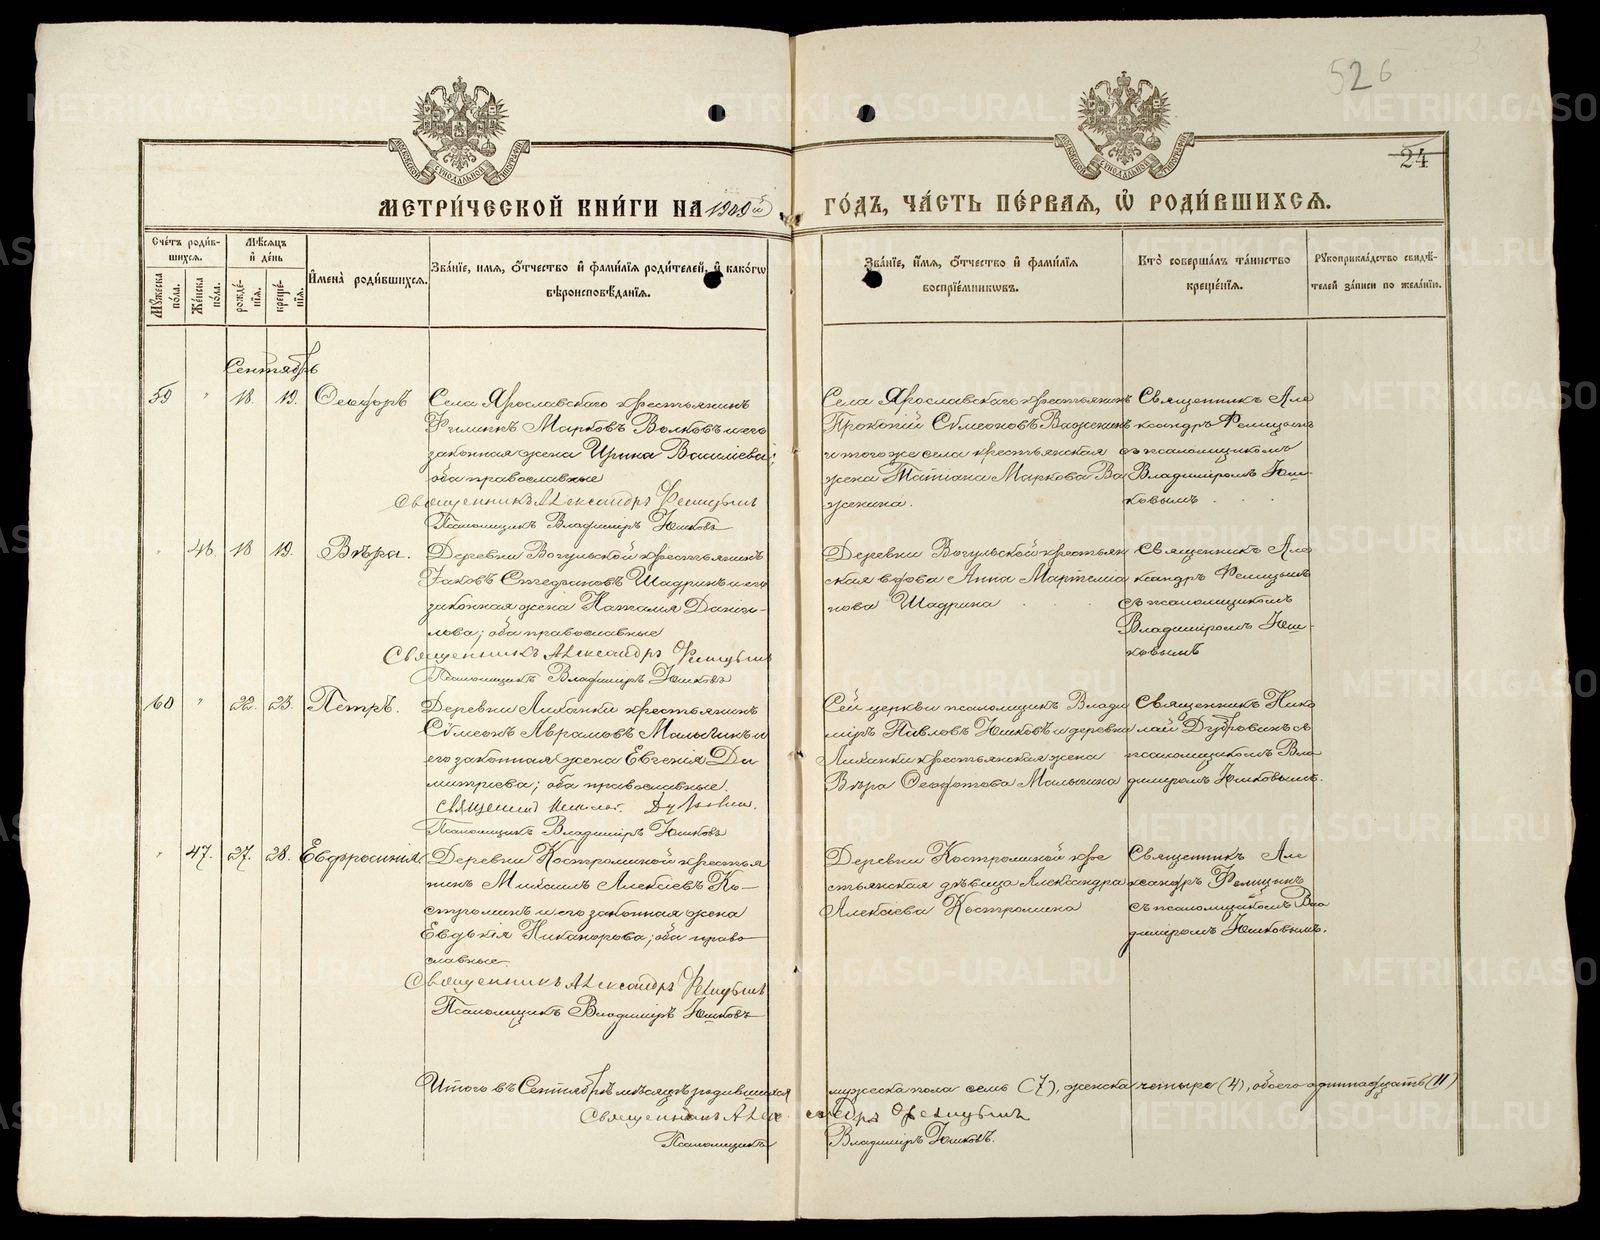 526
24
МЕТРИ́ЧЕСКОЙ КНИ́ГИ НА 1909й ГО́ДЪ, ЧА́СТЬ ПЕ́РВАЯ, Ѡ҆ РОДИ́ВШИХСЯ.
Сче́тъ роди́вшихся.
Мѣ́сяцъ и҆ де́нь
Му́жеска по́ла.
Же́нска по́ла.
рожде́нїя.
креще́нїя.
И҆мена̀ роди́вшихся.
Зва́нїе, и҆мя, ѻ҆́тчество и҆ фами́лїя роди́телей, и҆ како́гѡ вѣроисповѣ́данїя.
Зва́нїе, и҆́мя, ѻ҆́тчество и҆ фами́лїя воспрїе́мникѡвъ.
Кто̀ соверша́лъ та́инство креще́нїя.
Рукоприкла́дство свидѣ́телей за́писи по жела́нїю.
Сентябрь
59 " 18. 19. Ѳеодоръ
Села Ярославскаго крестьянинъ
Марковъ Волковъ и его
законная жена Ирина Василіева;
оба православные
Священникъ Александръ
Псаломщикъ Владиміръ Юшковъ
Села Ярославскаго крестьянинъ
Прокопій Сѵмеоновъ Важенинъ
и того же села крестьянская
жена Татіана Маркова Ва
женина.
Священникъ Але
ксандръ
съ псаломщикомъ
Владиміромъ Юш-
ковымъ
" 46. 18 19. Вѣра.
Деревни Вогульской крестьянинъ
Іаковъ Стефановъ Шадринъ и его
законная жена Наталія Даніи-
лова; оба православные
Священникъ Александръ
Псаломщикъ Владиміръ Юшковъ
Деревни Вогульской крестьян
ская вдова Анна
нова Шадрина
Священникъ Але
ксандръ
съ псаломщикомъ
Владиміромъ Юш-
ковымъ
60 " 22. 23. Петръ.
Деревни крестьянинъ
Сѵмеонъ Аврамовъ Малыгинъ и
его законная жена Евгенія Ди
митріева; оба православные.
Священникъ Николай Дубровинъ.
Псаломщикъ Владиміръ Юшковъ
Сей церкви псаломщикъ Влади
міръ Павловъ Юшковъ и деревни
крестьянская жена
Вѣра Малыгина
Священникъ Нико
лай Дубровинъ съ
псаломщикомъ Вла
диміромъ Юшковымъ.
" 47. 27. 28. Евфросинія
Деревни Костроминой крестья
нинъ Михаилъ Алексіевъ Ко-
строминъ и его законная жена
Евдокія Никанорова; оба право
славные.
Священникъ Александръ
Псаломщикъ Владиміръ Юшковъ
Деревни Костроминой кре
стьянская дѣвица Александра
Алексіева Костромина
Священникъ Але
ксандръ
съ псаломщикомъ Вла
диміромъ Юшковымъ.
Итого въ Сентябрѣ мѣсяцѣ родившихся мужеска пола семь (7), женска четыре (4), обоего одиннадцать (11)
Священникъ Александръ
Псаломщикъ Владиміръ Юшковъ.
METRIKI.GASO-URAL.RU